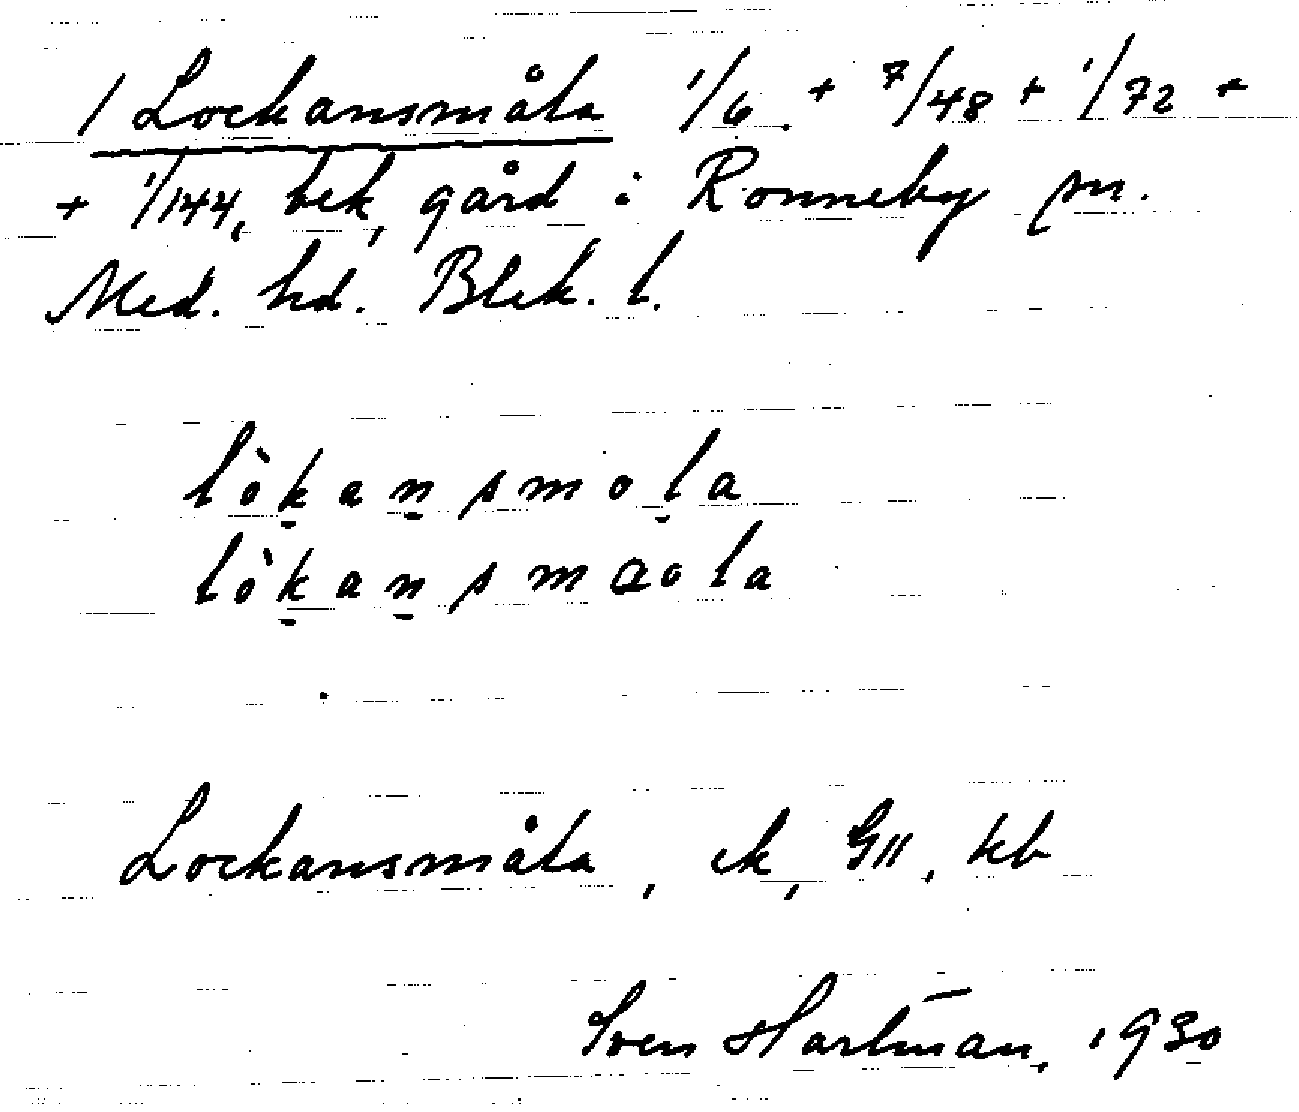 1 Lockansmåla 1/6 + 7/48 + 1/72 +
+ 1/144, bek, gård i Ronneby sn.
Med. hd. Blek. l.
lòkansmola
lòkansmaola
Lockansmåla, ek, GII, kb
Sven Hartman, 1930